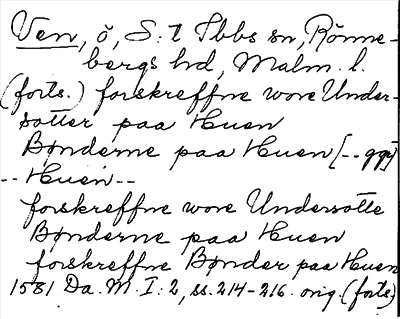 Ven, ö, S:t Ibbs sn, Rönne-
bergs hd, Malm. l.
(forts.) forskreffne wore Under-
sotter paa Huen
Bønderne paa Huen [--gg]
--Huen--
forskreffne wore Undersotte
Bønderne paa Huen
forskreffne Bønder paa Huen
1581 Da. M. I:2, ss. 214-216. orig. (forts.)